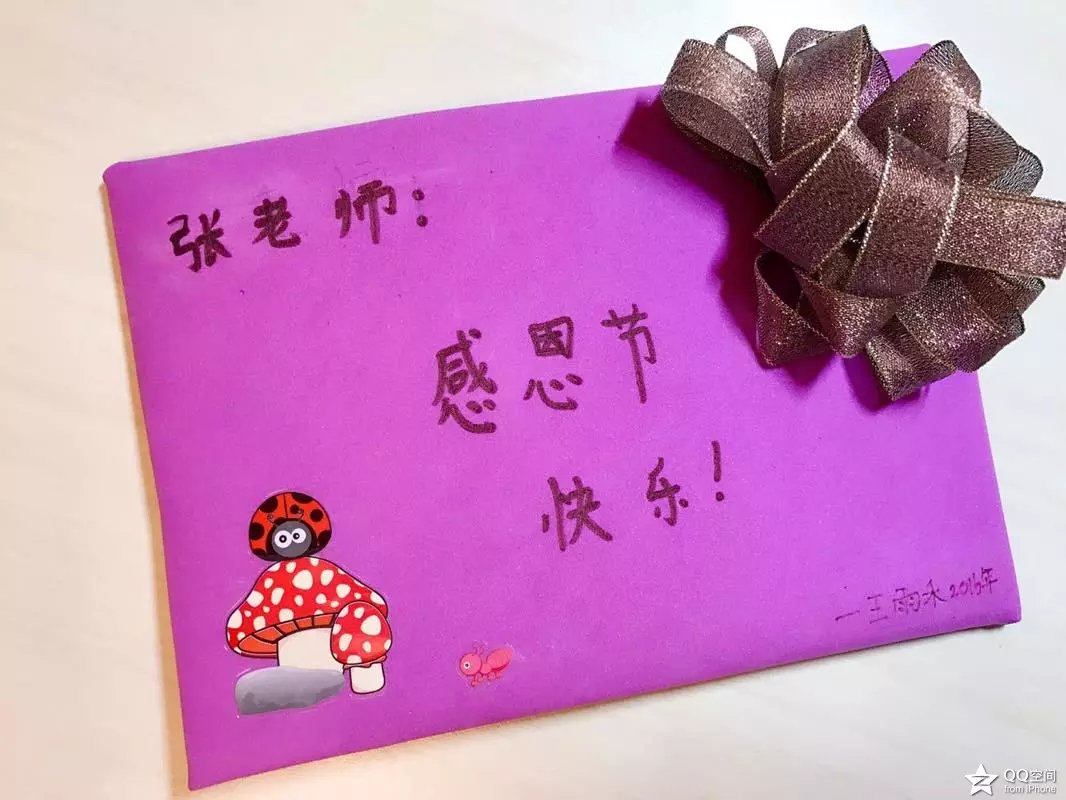 张老师：
感恩节
快乐！
—王雨禾2016年
QQ空间
from iPhone